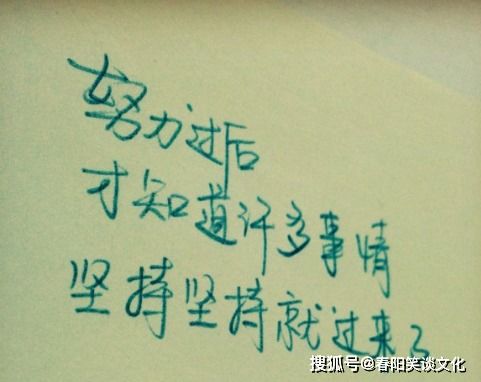 努力过后
才知道许多事情
坚持坚持就过来了
搜狐号@春阳笑谈文化